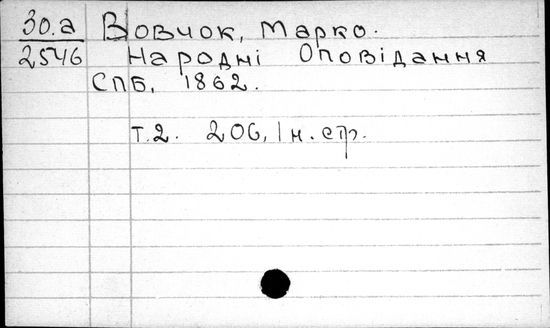 30.а Вовчок, Марко.
2546 Народні Оповідання
СПБ, 1862.
т.2. 206, 1 н. стр.